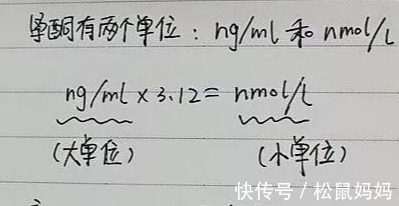 孕酮有两个单位：ng/ml 和 nmol/L
ng/ml × 3.12 = nmol/L
（大单位） （小单位）
快传号 / 松鼠妈妈